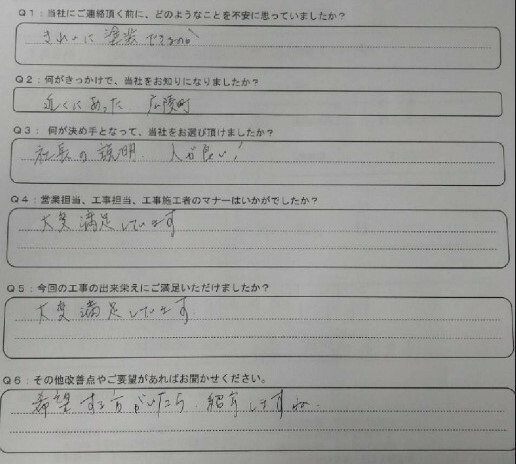 Q1：当社にご連絡頂く前に、どのようなことを不安に思っていましたか？
きれいに塗装できるのか
Q2：何がきっかけで、当社をお知りになりましたか？
近くにあった 広陵町
Q3： 何が決め手となって、当社をお選び頂けましたか？
社長の説明、人が良い！
Q4：営業担当、工事担当、工事施工者のマナーはいかがでしたか？
大変満足しています
Q5：今回の工事の出来栄えにご満足いただけましたか？
大変満足しています。
Q6：その他改善点やご要望があればお聞かせください。
希望する方がいたら、紹介しますね。